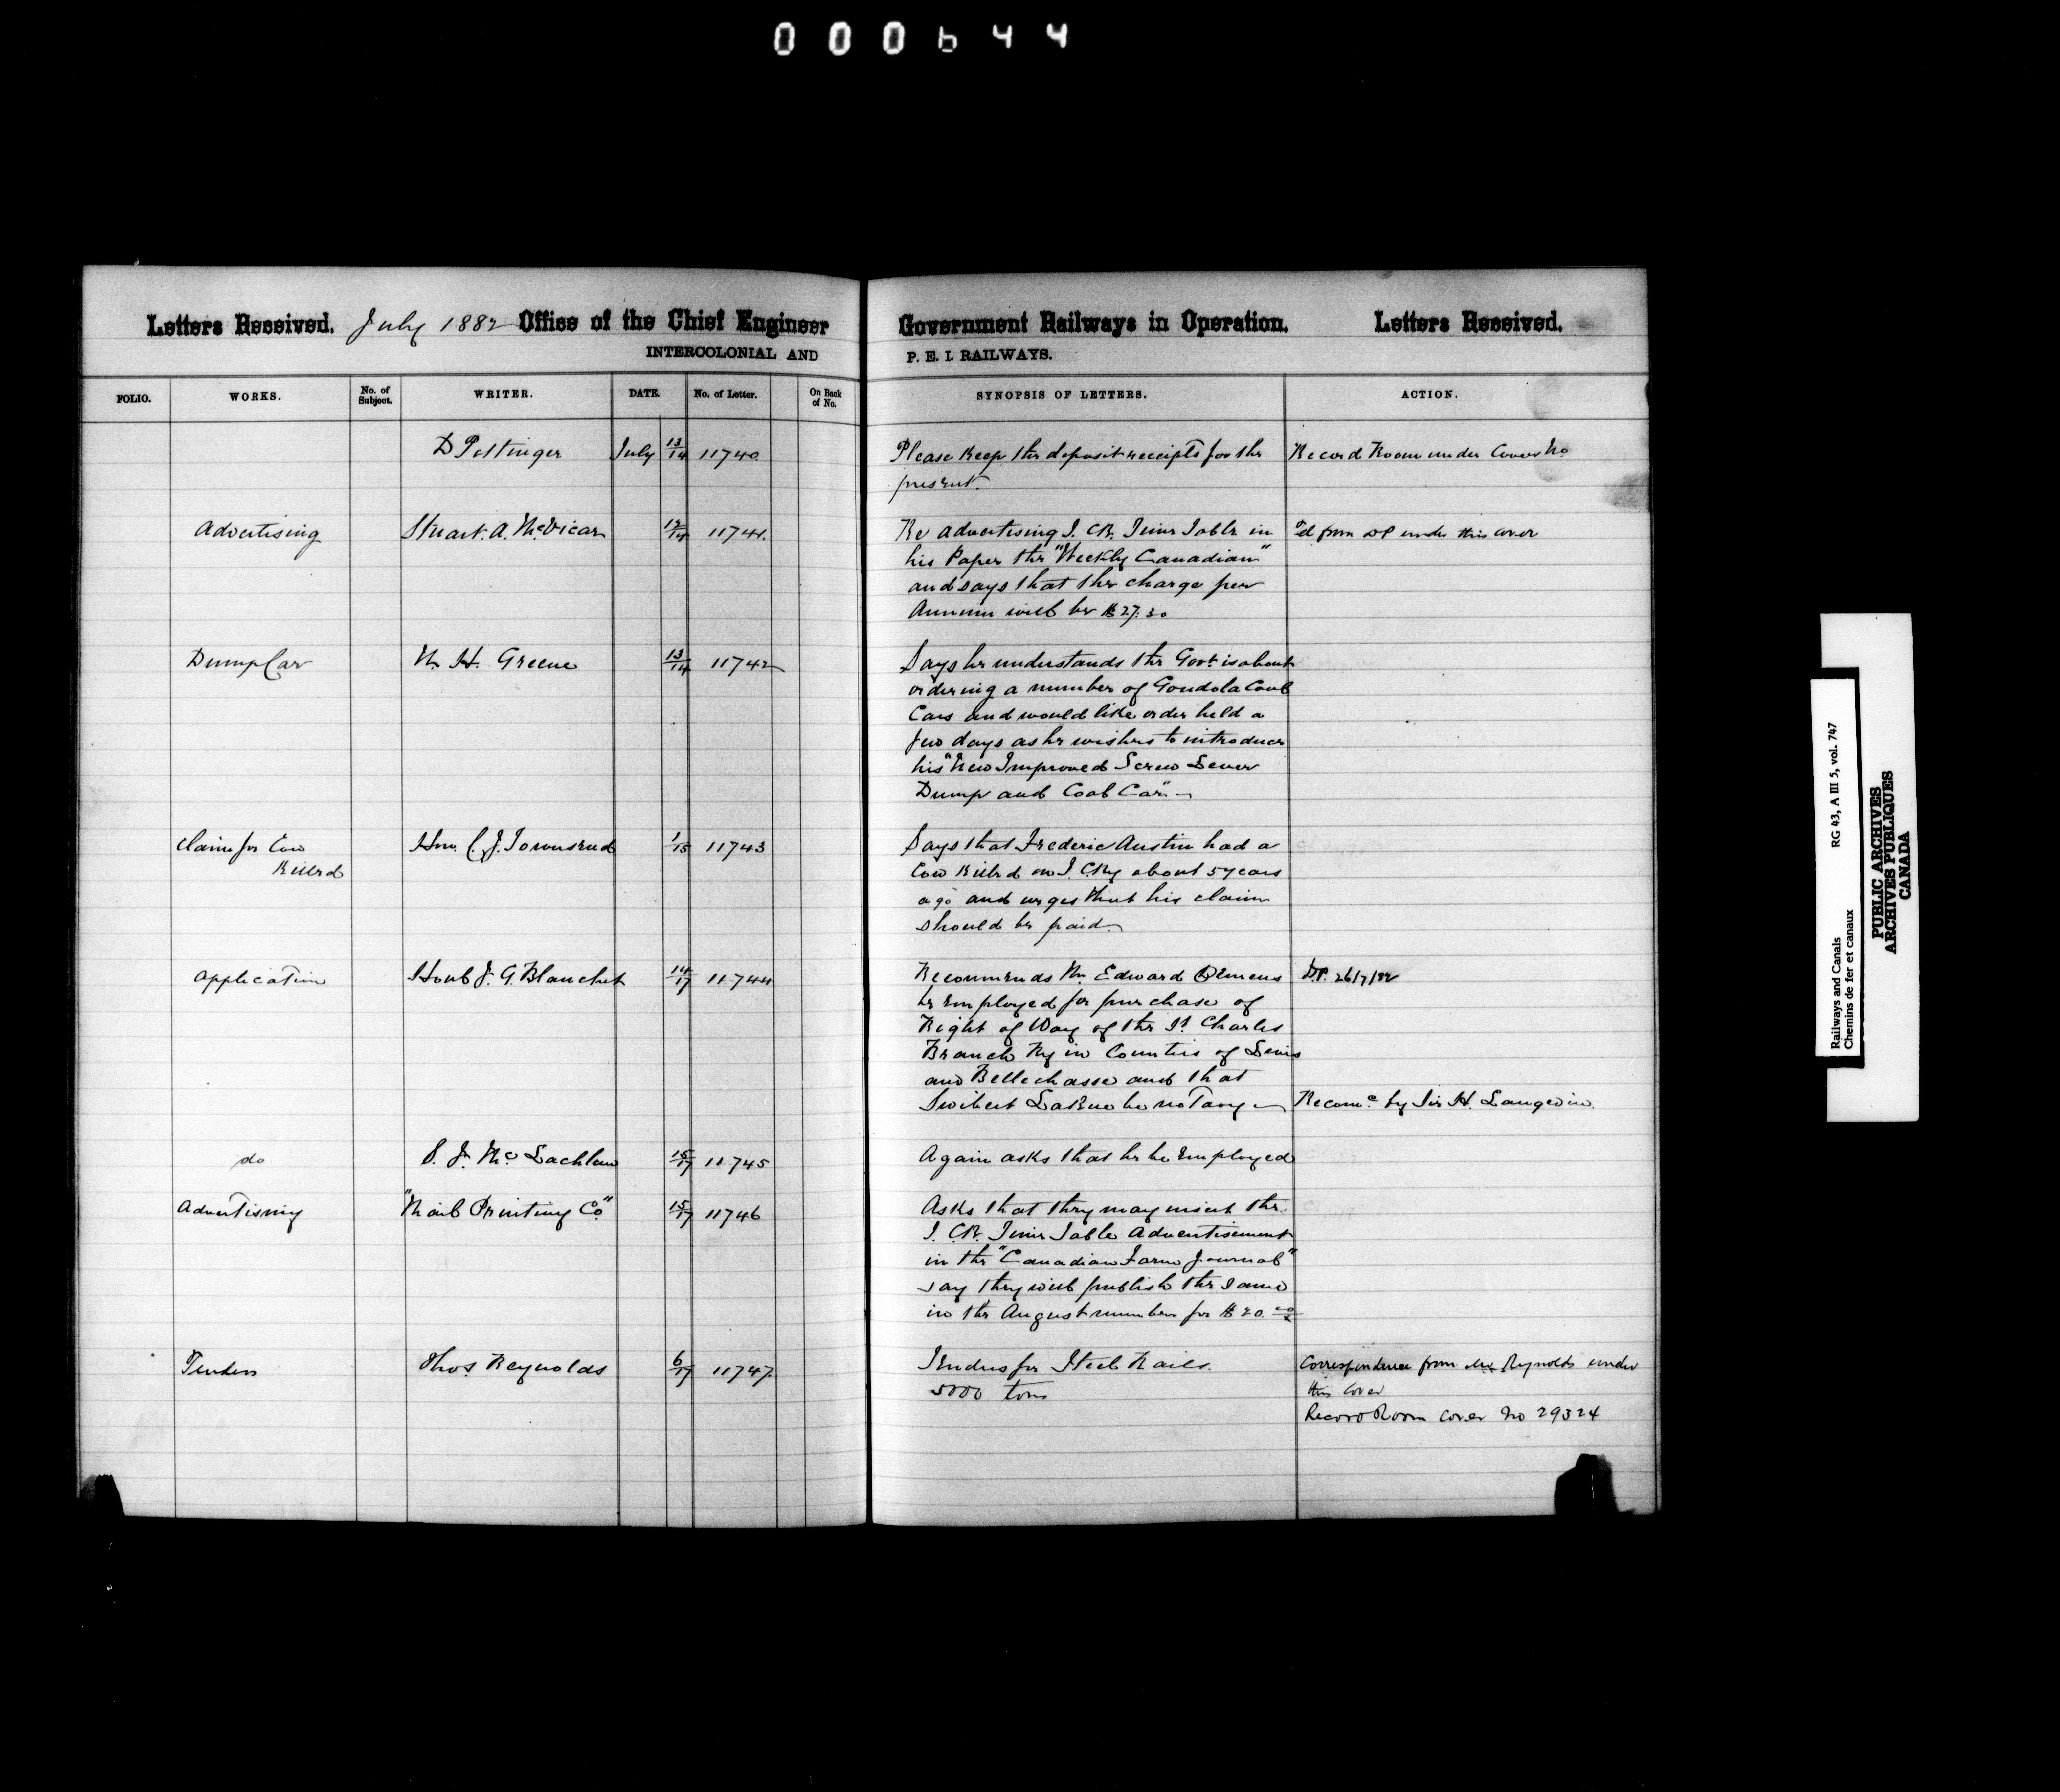 000644
Letters Received. July 1882 Office of the Chief Engineer
INTERCOLONIAL AND
Government Railways in Operation. Letters Received.
P. E. I. RAILWAYS.
FOLIO. WORKS. No. of Subject. WRITER. DATE. No. of Letter. On Back of No.
SYNOPSIS OF LETTERS. ACTION.
D Pottinger July 13/14 11740
Please keep the deposit receipts for the
present.
Record Room under Cover No
Advertising Stuart. A. McVicar 12/14 11741.
Re advertising I. C.R. Time Table in
his Paper the "Weekly Canadian"
and says that the charge per
Annum will be $27.30
'd from DP under this cover
Dump Car W. H. Greene 13/14 11742
Says he understands the Govt is about
ordering a number of Gondola Coal
Cars and would like order held a
few days as he wishes to introduce
his "New Improved Screw Lever
Dump and Coal Car" -
Claim for Cow
Killed
Hon. C. J. Townsend 1/15 11743
Says that Frederic Austin had a
Cow Killed on I. C.Ry about 5 years
ago and urges that his claim
should be paid
Application Honl J. G. Blanchet 14/17 11744
Recommends Mr. Edward Demeus
be Employed for purchase of
Right of Way of the St Charles
Branch Ry in Counties of Levis
and Bellechasse and that
Swibert LaRue be notary -
D.P. 26/7/82
Recomd by Sir H. Langevin.
do P. J. Mc Lachlan 15/17 11745
Again asks that he be Employed
Advertising "Mail Printing Co." 15/17 11746
Asks that they may insert the
I. C.R. Time Table Advertisement
in the "Canadian Farm Journal"
say they will publish the same
in the August number for $20.00
Tenders Thos Reynolds 6/17 11747
Tenders for Steel Rails.
5000 tons
Correspondence from Mr Reynolds under
this Cover
Record Room Cover No 29324
Railways and Canals RG 43, A III 5, vol. 747
Chemins de fer et canaux
PUBLIC ARCHIVES
ARCHIVES PUBLIQUES
CANADA